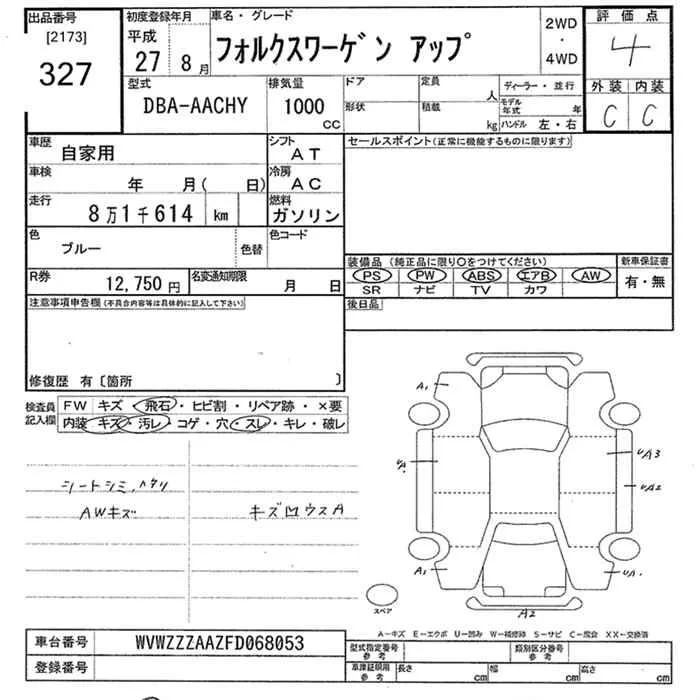 出品番号
[2173]
327
初度登録年月
平成
27 8月
車名・グレード
フォルクスワーゲン アップ
2WD
・
4WD
評価点
4
外装 内装
C C
型式
DBA-AACHY
排気量
1000
CC
ドア
形状
定員
人
積載
kg
ディーラー・並行
モデル年式 年
ハンドル 左・右
車歴
自家用
シフト
AT
車検
年 月( 日)
冷房
AC
走行
8万1千614 km
燃料
ガソリン
色
ブルー
色替
色コード
R券
12,750円
名変通知期限
月 日
セールスポイント(正常に機能するものに限ります)
装備品 (純正品に限り○をつけてください)
PS PW ABS エアB AW
SR ナビ TV カワ
新車保証書
有・無
後日品
注意事項申告欄(不具合内容等は具体的に記入して下さい)
修復歴 有〔箇所 〕
検査員記入欄
FW キズ・飛石・ヒビ割・リペア跡・×要
内装 キズ・汚レ・コゲ・穴・スレ・キレ・破レ
シートシミ、ハクリ
AWキズ
キズ凹ウスA
A1
UA
UA3
UA2
A1
UA1
A2
スペア
A-キズ E-エクボ U-凹み W-補修跡 S-サビ C-腐食 XX-交換済
車台番号
WVWZZZAAZFD068053
登録番号
型式指定番号
参考
類別区分番号
参考
車庫証明用
参考
長さ cm
幅 cm
高さ cm